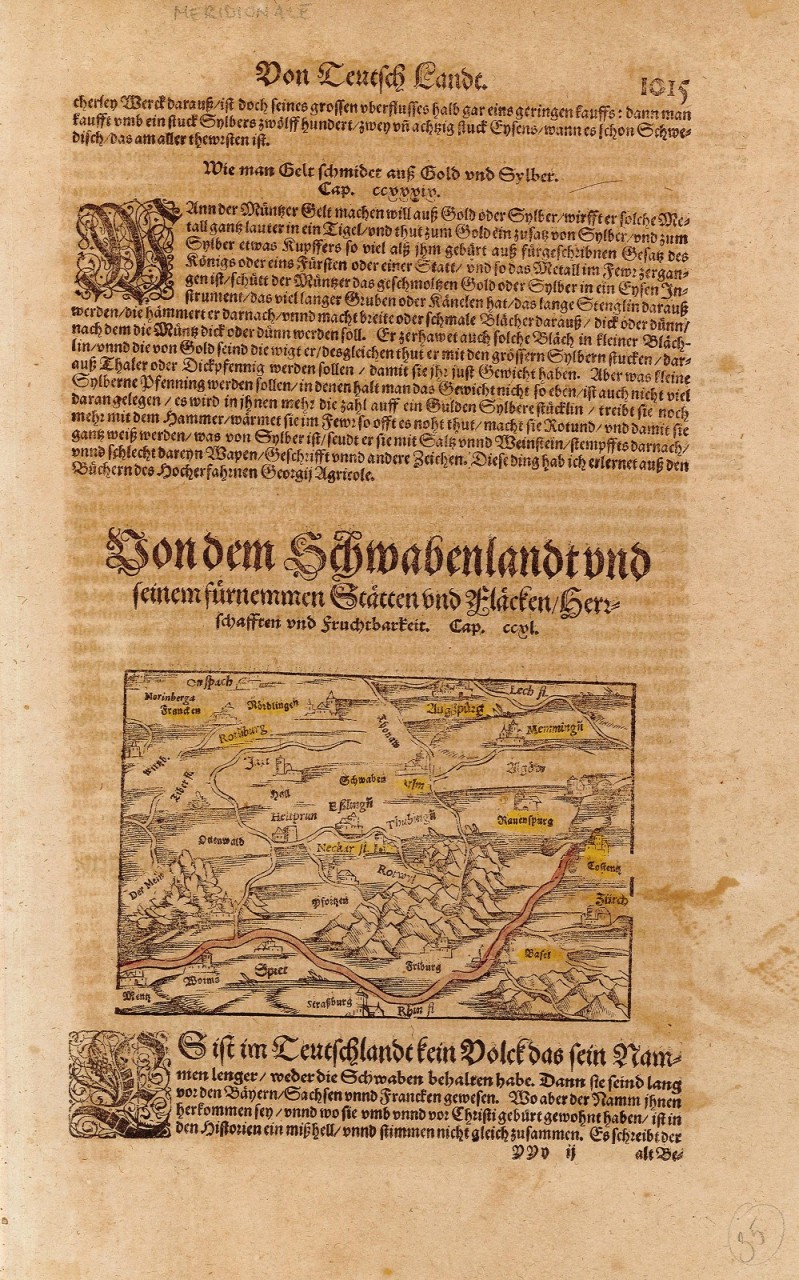 MERIDIONALE
Von Teutsch Landt.
1015
cherley Werck darauß/ist doch seines grossen vberflusses halb gar eins geringen kauffs: dann man
kaufft vmb ein stuck Sylbers zwölff hundert/zwey vñ achtzig stuck Eysens/wann es schon Schwe-
disch/das am aller thewrsten ist.
Wie man Gelt schmidet auß Gold vnd Sylber.
Cap. ccxxxix.
WAnn der Müntzer Gelt machen will auß Gold oder Sylber/wirfft er solche Me-
tall gantz lauter in ein Tigel/vnd thut zum Gold ein zusatz von Sylber/vnd zum
Sylber etwas Kupffers so viel alß jhm gebürt auß fürgeschribnen Gesatz des
Königs oder eins Fürsten oder einer Statt/ vnd so das Metall im Fewr zergan-
gen ist/schütt der Müntzer das geschmoltzen Gold oder Sylber in ein Eysen In-
strument/das viel langer Gruben oder Känelen hat/das lange Stenglin darauß
werden/die hämmert er darnach/vnnd macht breite oder schmale Blächer darauß/ dick oder dünn/
nach dem die Müntz dick oder dünn werden soll. Er zerhawet auch solche Bläch in kleiner Bläch-
lin/vnnd die von Gold seind die wigt er/desgleichen thut er mit den grössern Sylbern stucken/dar-
auß Thaler oder Dickpfennig werden sollen/ damit sie jhr just Gewicht haben. Aber was kleine
Sylberne Pfenning werden sollen/in denen halt man das Gewicht nicht so eben/ist auch nicht viel
daran gelegen/ es wird in jhnen mehr die zahl auff ein Gulden Sylbere stücklin/ treibt sie noch
mehr mit dem Hammer/wärmet sie im Fewr so offt es noht thut/macht sie Rotund/vnd damit sie
gantz weiß werden/was von Sylber ist/seudt er sie mit Saltz vnnd Weinstein/stempffts darnach/
vnnd schlecht dareyn Wapen/Geschrifft vnnd andere Zeichen. Diese ding hab ich erlernet auß den
Büchern des Hocherfahrnen Georgij Agricole.
Von dem Schwabenlandt vnd
seinem fürnemmen Stätten vnd Fläcken/Herr-
schafften vnd Fruchtbarkeit. Cap. ccxl.
Onspach
Lech fl.
Norinberga
Francken
Nördlingen
Augspurg
Rotnburg
Thonaw
Memmingñ
Wirtzb.
Jaxt
Algöw
Tiber fl.
Schwaben
Ulm
Hall
Eßlingñ
Heilprun
Thubingñ
Ravenspurg
Ottenwald
Necker fl.
Costentz
Der Mein
Rotwyl
Pfortzen
Zürch
Basel
Spier
Friburg
Worms
Mentz
Straßburg
Rhin fl
ES ist im Teutschlandt kein Volck das sein Nam-
men lenger/ weder die Schwaben behalten habe. Dann sie seind lang
vor den Bäyern/Sachsen vnnd Francken gewesen. Wo aber der Namm jhnen
herkommen sey/ vnnd wo sie vmb vnnd vor Christi gebürt gewohnt haben/ ist in
den Historien ein mißhell/vnnd stimmen nicht gleich zusammen. Es schreibt der
yyy ij
alt Be-
35